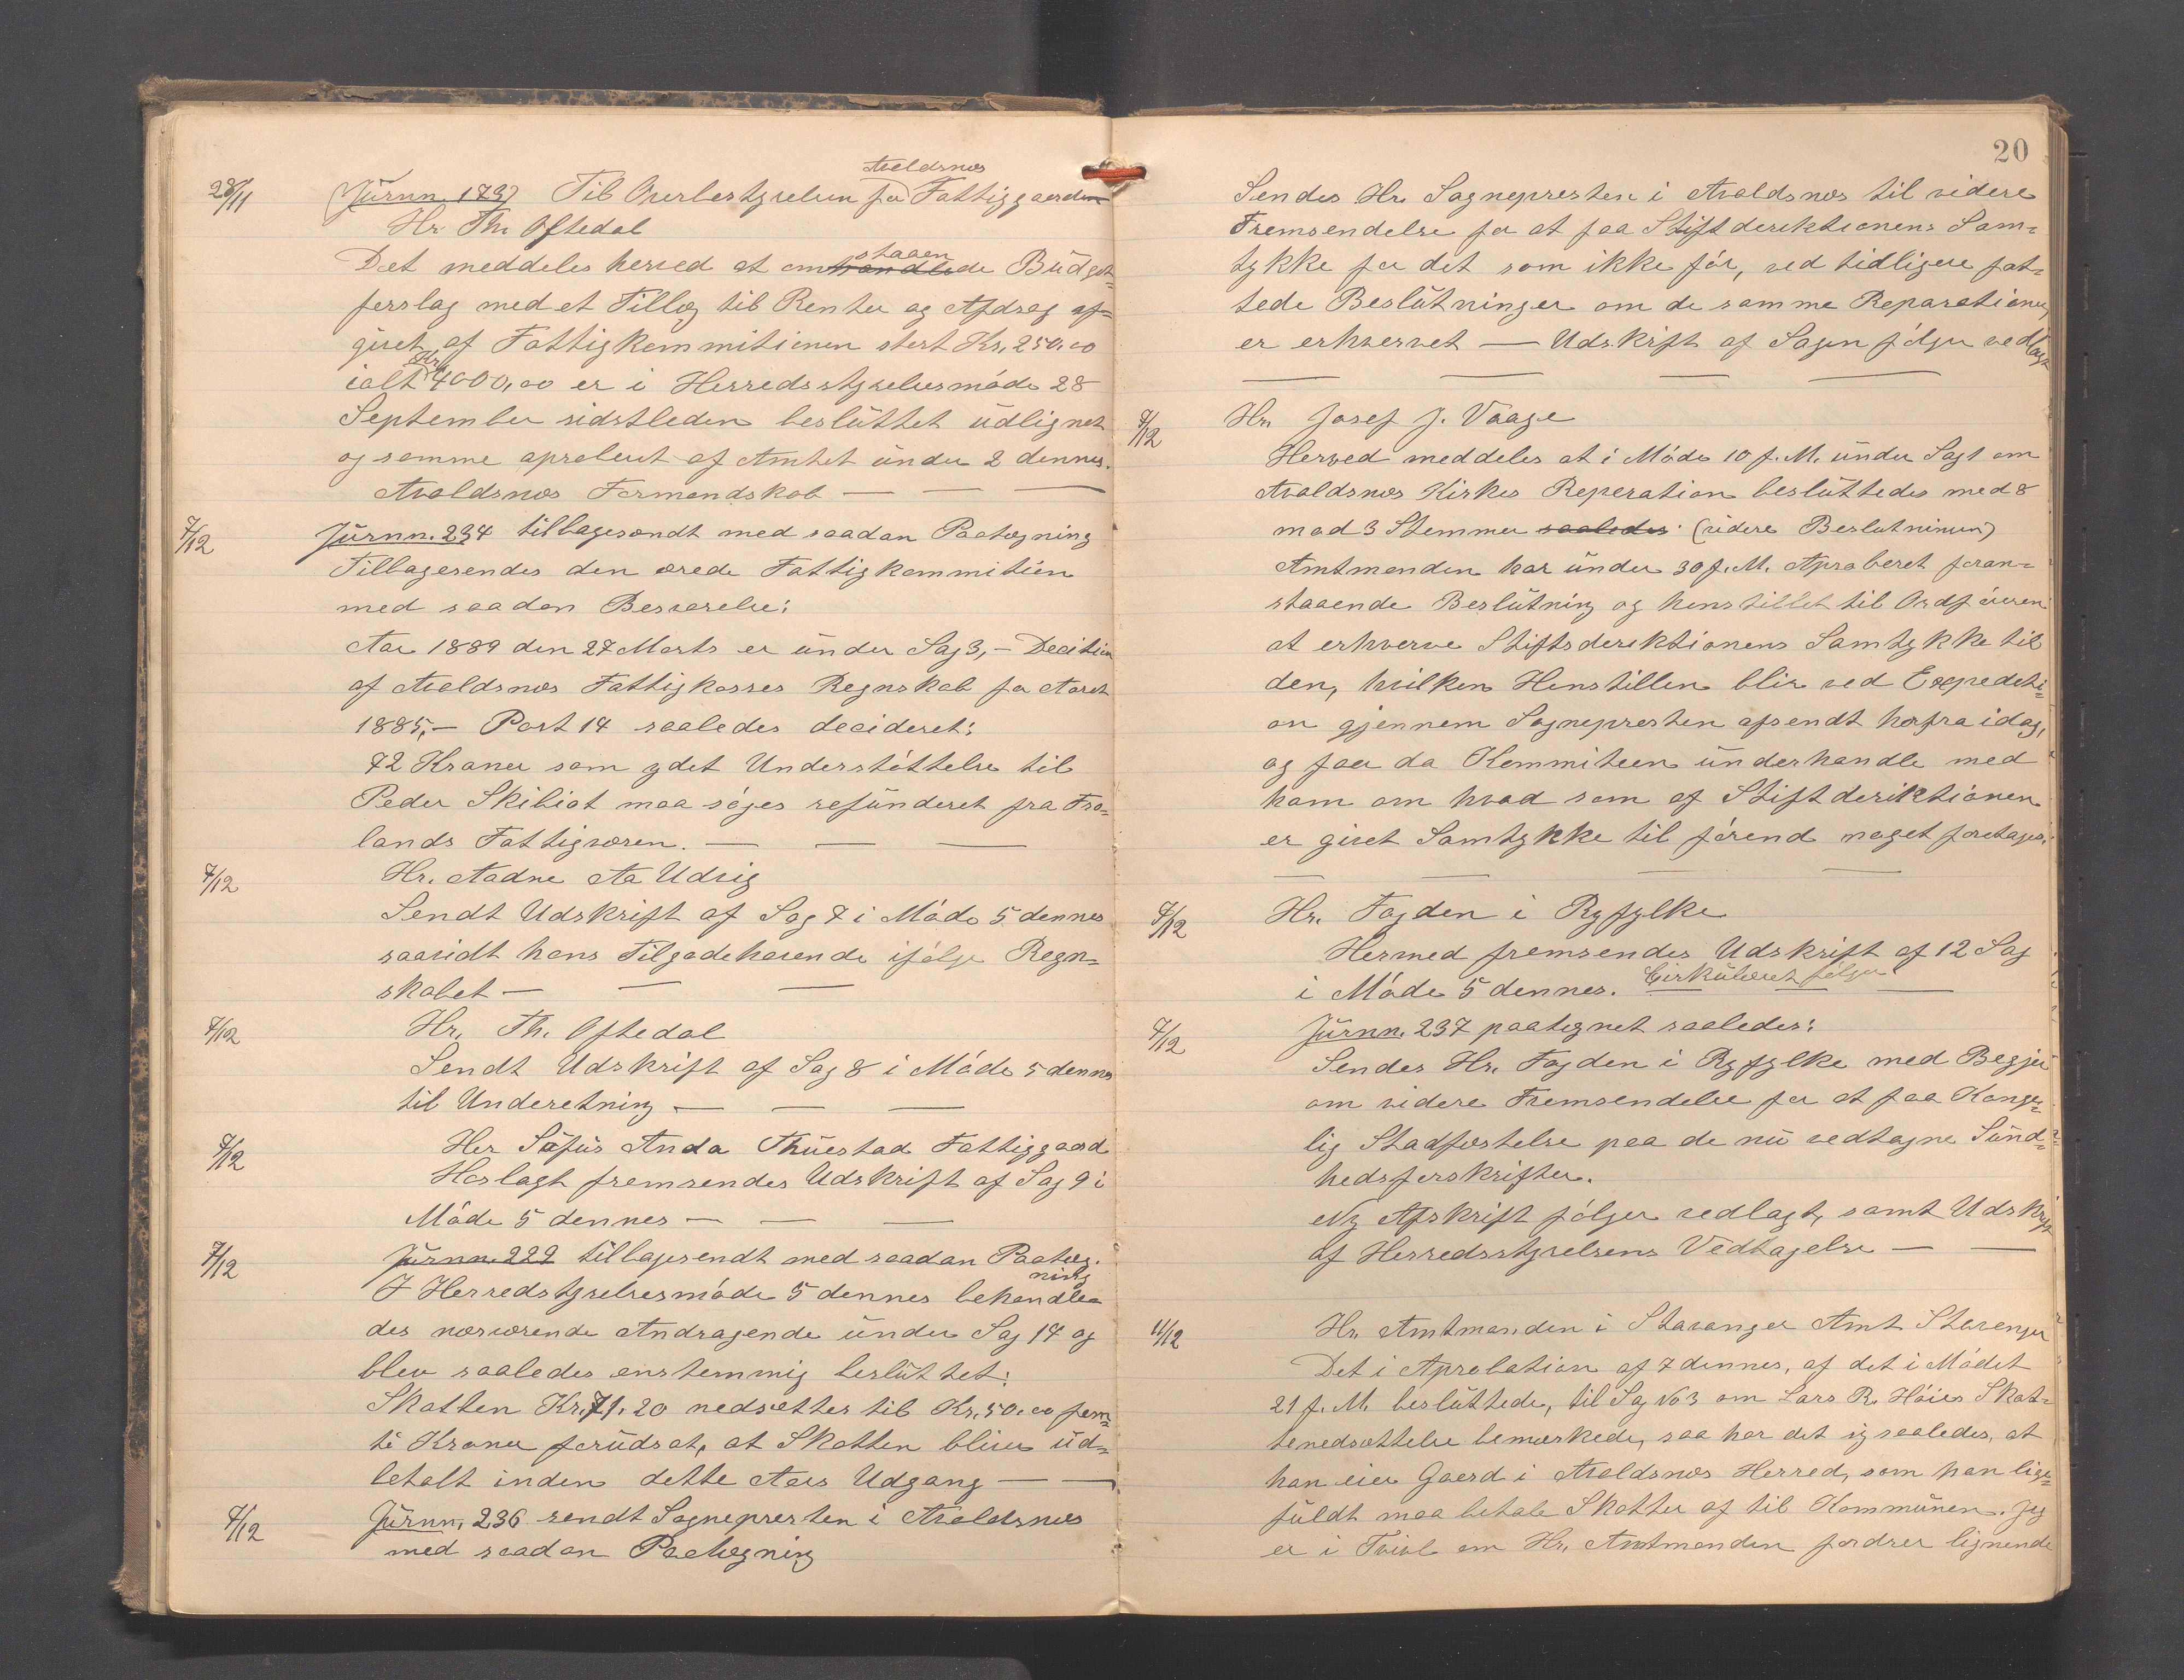 28/11 (Jurnn. 173) Til Overbestyrelsen for Avaldsnæs Fattiggaarden
Hr. Th. Oftedal
Det meddeles herved at omhandlede staaende Budget-
forslag med et Tillæg til Renter og Afdrag af-
givet af Fattigkommitionen stort Kr. 250,00
ialt Kr. 4000,00 er i Herredsstyrelsesmøde 28
September sidstleden besluttet udlignet
og samme aproberet af Amtet under 2 dennes.
Avaldsnæs Formandskab — — —
7/12 Jurnn. 234 tilbagesendt med saadan Paategning
Tilbagesendes den ærede Fattigkommition
med saadan Besvarelse:
Aar 1889 den 27 Marts er under Sag 3, – Decition
af Avaldsnæs Fattigkasses Regnskab for Aaret
1885, – Post 14 saaledes decideret:
72 Kroner som ydet Understøttelse til
Peder Skibiat maa søges refunderet fra
lands Fattigvæsen. — — —
7/12 Hr. Aadne Aa Udvig
Sendt Udskrift af Sag 7 i Møde 5 dennes
saavidt hans Tilgodehavende ifølge Regn-
skabet — — —
7/12 Hr. Th. Oftedal
Sendt Udskrift af Sag 8 i Møde 5 dennes
til Underetning — — —
7/12 Her Sofus Anda Thuestad Fattiggaard
Hoslagt fremsendes Udskrift af Sag 9 i
Møde 5 dennes — — —
7/12 Jurnn. 222 tilbagesendt med saadan Paateg-
ning
I Herredstyrelsesmøde 5 dennes behandle-
des nærværende Andragende under Sag 14 og
blev saaledes enstemmig besluttet:
Skatten Kr. 71,20 nedsættes til Kr. 50,00 fem-
ti Kroner forudsat, at Skatten bliver ud-
betalt inden dette Aars Udgang — —
7/12 Jurnn. 236 sendt Sognepresten i Avaldsnæs
med saadan Paategning
20
Sendes Hr. Sognepresten i Avaldsnæs til videre
Fremsendelse for at faa Stiftderektionens Sam-
tykke for det som ikke før, ved tidligere fat-
tede Beslutninger om de samme Reparationer,
er erhvervet — Udskrift af Sagen følger vedlagt
— — — —
7/12 Hr. Josef J. Vaage
Herved meddeles at i Møde 10 f. M. under Sag 1 om
Avaldsnæs Kirkes Reperation besluttedes med 8
mod 3 Stemmer saaledes: (videre Beslutninen)
Amtmanden har under 30 f. M. Aproberet foran-
staaende Beslutning og henstillet til Ordføreren
at erhverve Stiftsderektionens Samtykke til
den, hvilken Henstillen blir ved Expediti-
on gjennem Sognepresten afsendt herfra idag,
og faar da Kommiteen underhandle med
ham om hvad som af Stiftderiktionen
er givet Samtykke til førend noget foretages.
— — — —
7/12 Hr. Fogden i Ryfylke
Hermed fremsendes Udskrift af 12 Sag
i Møde 5 dennes. Cirkulæret følger
7/12 Jurnn. 237 paategnet saaledes:
Sendes Hr. Fogden i Ryfylke med Begjær
om videre Fremsendelse for at faa Konge-
lig Stadfæstelse paa de nu vedtagne Sund-
hedsforskrifter.
Ny Afskrift følger vedlagt, samt Udskrift
af Herredsstyrelsens Vedtagelse — —
11/12 Hr. Amtmanden i Stavanger Amt Stavanger
Det i Aprobation af 7 dennes, af det i Mødet
21 f. M. besluttede, til Sag No 3 om Lars R. Høies Skat-
tenedsættelse bemærkede, saa har det sig saaledes, at
han eier Gaard i Avaldsnæs Herred, som han lige-
fuldt maa betale Skatter af til Kommunen. Jeg
er i Tvivl om Hr. Amtmanden fordrer lignende